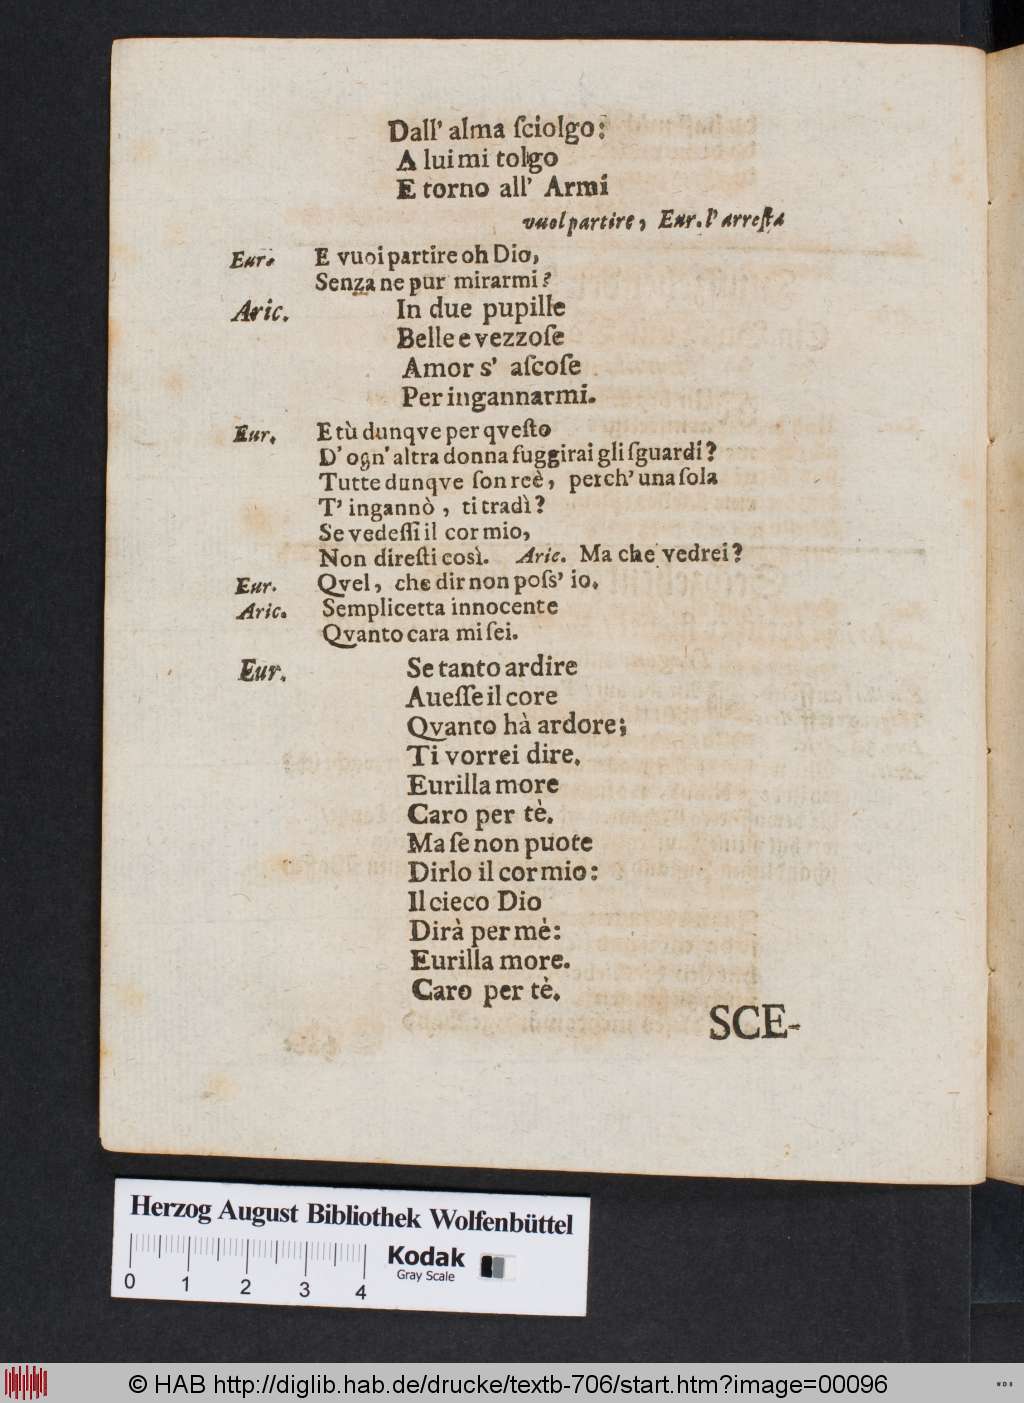 Dall' alma ſciolgo:
A lui mi tolgo
E torno all' Armi
vuol partire, Eur. l' arreſta
Eur. E vuoi partire oh Dio,
Senza ne pur mirarmi?
Aric. In due pupille
Belle e vezzoſe
Amor s' aſcoſe
Per ingannarmi.
Eur. E tù dunqve per qveſto
D' ogn' altra donna fuggirai gli ſguardi?
Tutte dunqve ſon reè, perch' una ſola
T' ingannò, ti tradì?
Se vedeſſi il cor mio,
Non direſti così. Aric. Ma che vedrei?
Eur. Qvel, che dir non poſs' io.
Aric. Semplicetta innocente
Qvanto cara mi ſei.
Eur. Se tanto ardire
Aueſſe il core
Qvanto hà ardore;
Ti vorrei dire.
Eurilla more
Caro per tè.
Ma ſe non puote
Dirlo il cor mio:
Il cieco Dio
Dirà per mè:
Eurilla more.
Caro per tè.
SCE-
Herzog August Bibliothek Wolfenbüttel
Kodak
Gray Scale
0 1 2 3 4
© HAB http://diglib.hab.de/drucke/textb-706/start.htm?image=00096